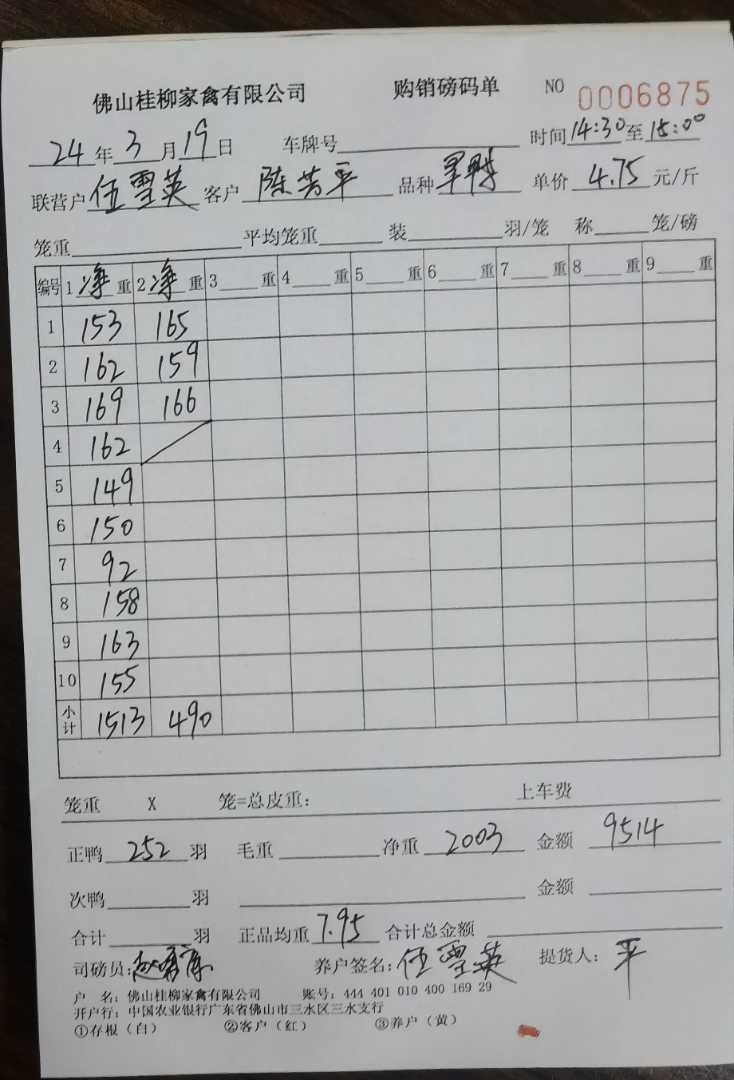 佛山桂柳家禽有限公司 购销磅码单 NO 0006875
24年3月19日 车牌号 时间14:30至15:00
联营户伍雪英客户陈芳平 品种 单价4.75元/斤
笼重 平均笼重 装 羽/笼 称 笼/磅
编号 1净重 2净重 3 重 4 重 5 重 6 重 7 重 8 重 9 重
1 153 165
2 162 159
3 169 166
4 162
5 149
6 150
7 92
8 158
9 163
10 155
小计 1513 490
笼重 X 笼=总皮重: 上车费
正鸭252羽 毛重 净重2003 金额9514
次鸭 羽 金额
合计 羽 正品均重7.95合计总金额
司磅员: 养户签名:伍雪英 提货人:平
户 名: 佛山桂柳家禽有限公司 账号: 444 401 010 400 169 29
开户行: 中国农业银行广东省佛山市三水区三水支行
①存根(白) ②客户(红) ③养户(黄)